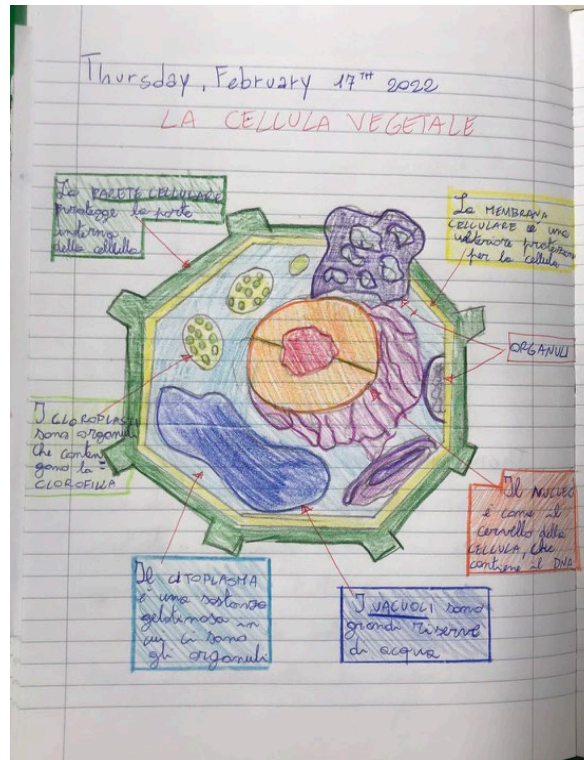 Thursday, February 17TH 2022
LA CELLULA VEGETALE
La PARETE CELLULARE
protegge la parte
interna
della cellula
La MEMBRANA
CELLULARE è una
ulteriore protezione
per la cellula
ORGANULI
I CLOROPLASTI
sono organuli
che conten
gono la
CLOROFILLA
Il NUCLEO
è come il
cervello della
CELLULA, che
contiene il DNA
Il CITOPLASMA
è una sostanza
gelatinosa in
cui ci sono
gli organuli
I VACUOLI sono
grandi riserve
di acqua